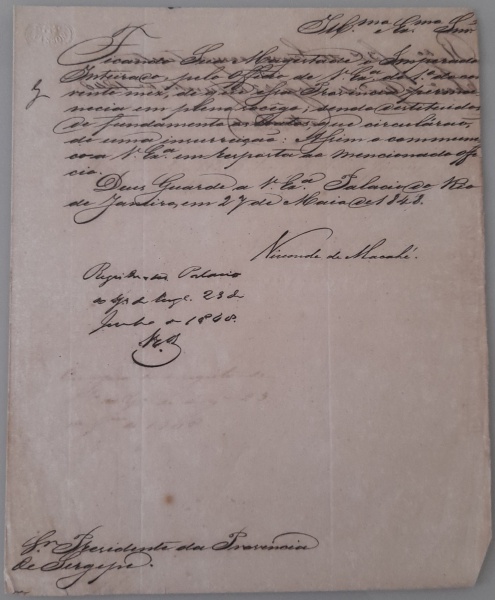 Ill.mo Exmo Snr
Ficando Sua Magestade o Imperador
Inteirado, pelo Officio de V.Ex.ª do 1.º do cor
rente mez, de que essa Provincia perma
necia em pleno socego, sendo destituidos
de fundamento os boatos, que circulárão,
de uma insurreição: Assim o commu
co a V.Ex.ª em resposta ao mencionado offi
cio.
Deus Guarde a V.Ex.ª Palacio do Rio
de Janeiro, em 27 de Maio de 1848.
Visconde de Macahé.
Palacio
23 de
Junho de 1848.
Sr. Presidente da Provincia
de Sergipe.